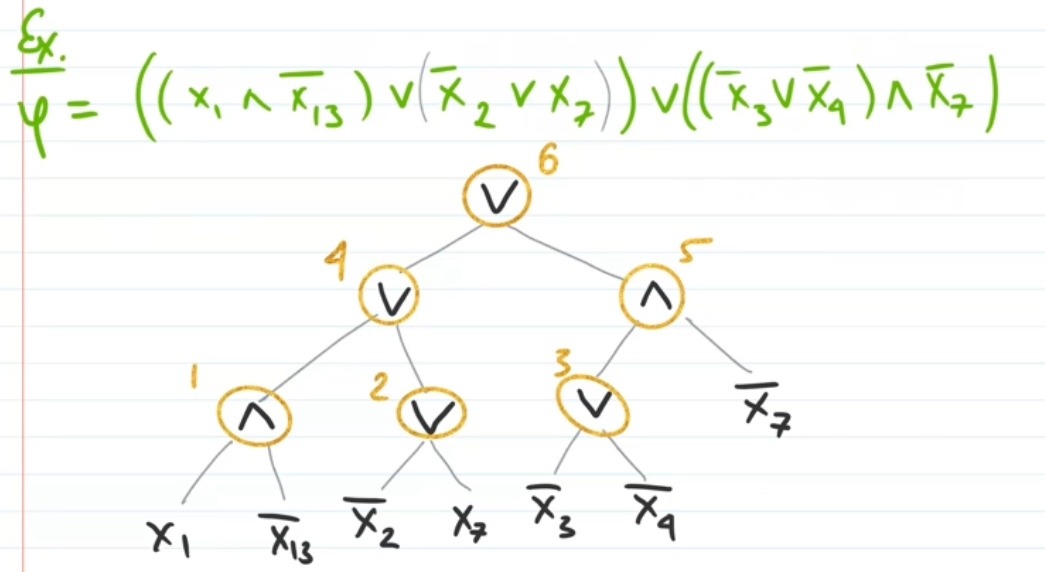 Ex.
φ = ((x₁ ∧ x̅₁₃) ∨ (x̅₂ ∨ x₇)) ∨ ((x̅₃ ∨ x̅₄) ∧ x̅₇)
∨ 6
4 ∨ ∧ 5
1 ∧ 2 ∨ 3 ∨ x̅₇
x₁ x̅₁₃ x̅₂ x₇ x̅₃ x̅₄